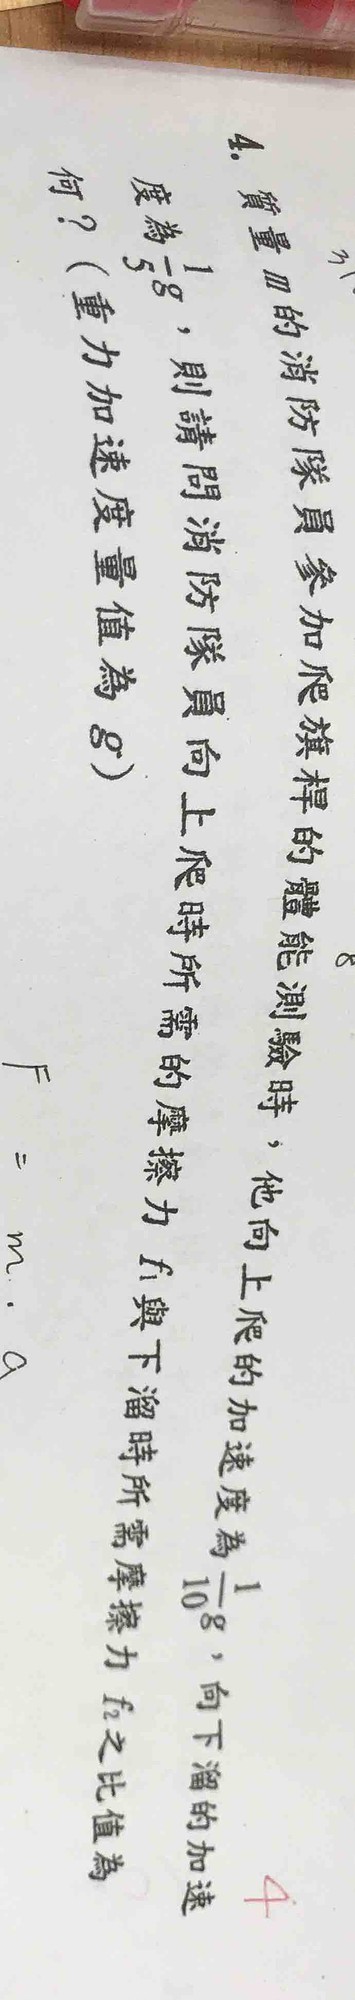 4. 質量 m 的消防隊員參加爬旗桿的體能測驗時，他向上爬的加速度為 1/10 g，向下溜的加速
度為 1/5 g，則請問消防隊員向上爬時所需的摩擦力 f₁ 與下溜時所需摩擦力 f₂ 之比值為
何？（重力加速度量值為 g）
F = m · a
4
8